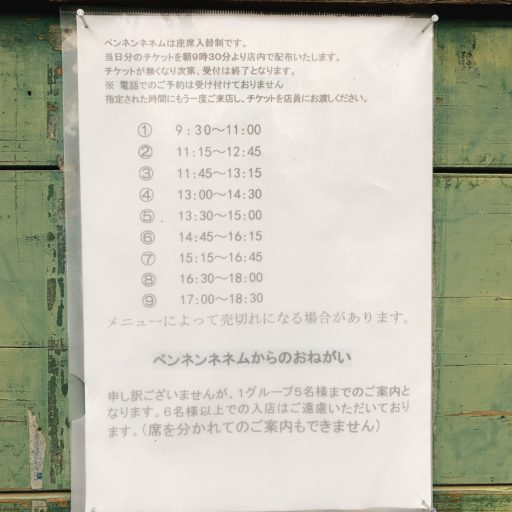 ペンネンネネムは座席入替制です。
当日分のチケットを朝9時30分より店内で配布いたします。
チケットが無くなり次第、受付は終了となります。
※ 電話でのご予約は受け付けておりません
指定された時間にもう一度ご来店し、チケットを店員にお渡しください。
① 9:30～11:00
② 11:15～12:45
③ 11:45～13:15
④ 13:00～14:30
⑤ 13:30～15:00
⑥ 14:45～16:15
⑦ 15:15～16:45
⑧ 16:30～18:00
⑨ 17:00～18:30
メニューによって売切れになる場合があります。
ペンネンネネムからのおねがい
申し訳ございませんが、1グループ5名様までのご案内と
なります。6名様以上での入店はご遠慮いただいており
ます。(席を分かれてのご案内もできません)